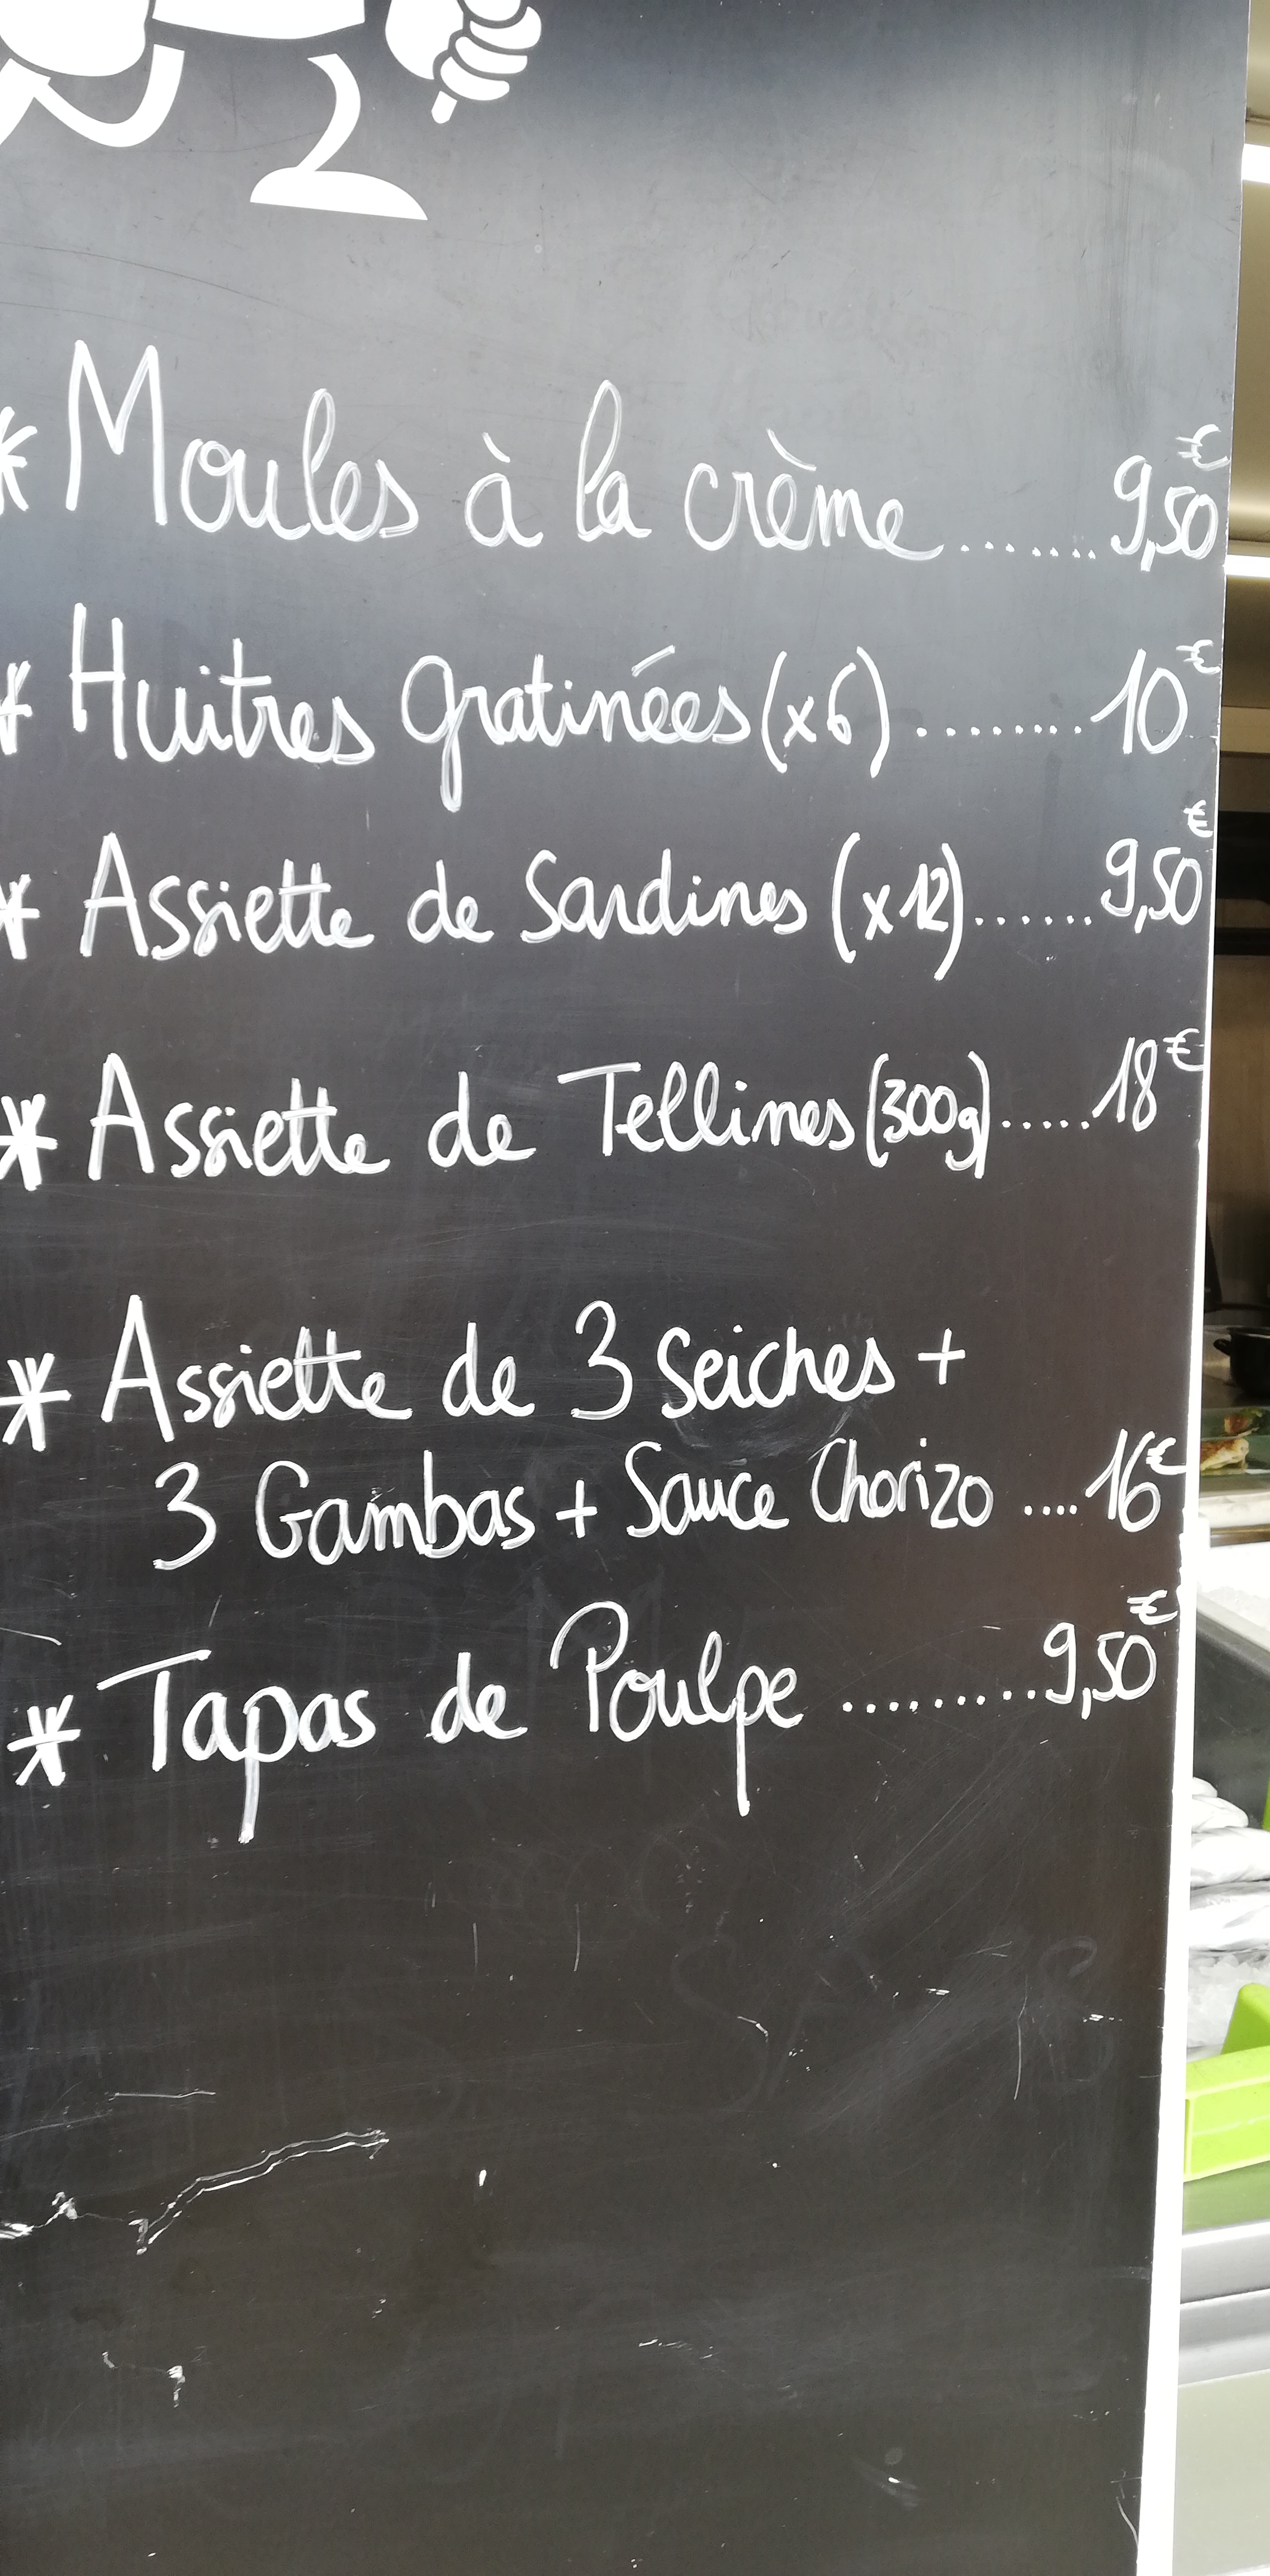 * Moules à la crème....... 9,50€
* Huitres gratinées (x6) ........ 10€
* Assiette de Sardines (x12)...... 9,50€
* Assiette de Tellines (300g)..... 18€
* Assiette de 3 Seiches +
3 Gambas + Sauce Chorizo .... 16€
* Tapas de Poulpe ......... 9,50€